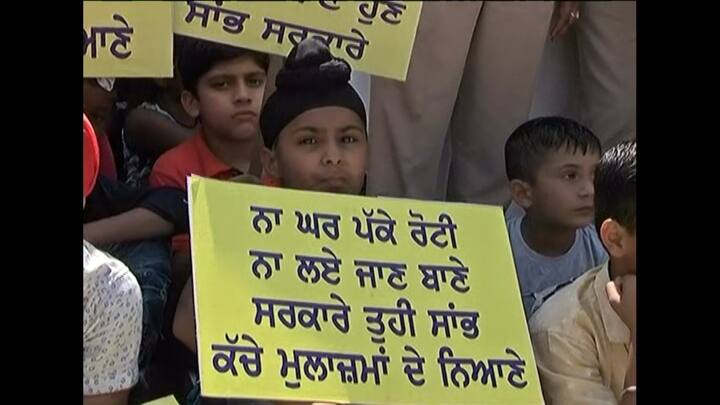 ਆਣੇ
ਸਾਂਭ ਸਰਕਾਰੇ
ਨਾ ਘਰ ਪੱਕੇ ਰੋਟੀ
ਨਾ ਲਏ ਜਾਣ ਬਾਣੇ
ਸਰਕਾਰੇ ਤੁਹੀ ਸਾਂਭ
ਕੱਚੇ ਮੁਲਾਜ਼ਮਾਂ ਦੇ ਨਿਆਣੇ